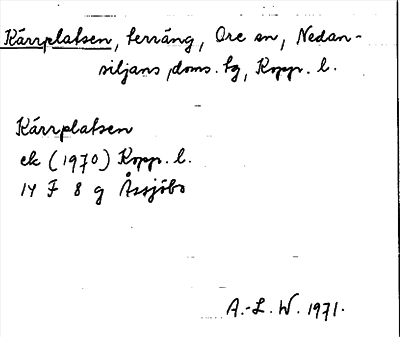 Kärrplatsen, terräng, Ore sn, Nedan-
siljans doms. tg, Kopp. l.
Kärrplatsen
ek (1970) Kopp. l.
14 F 8 g Åssjöbo
A.-L. W. 1971.